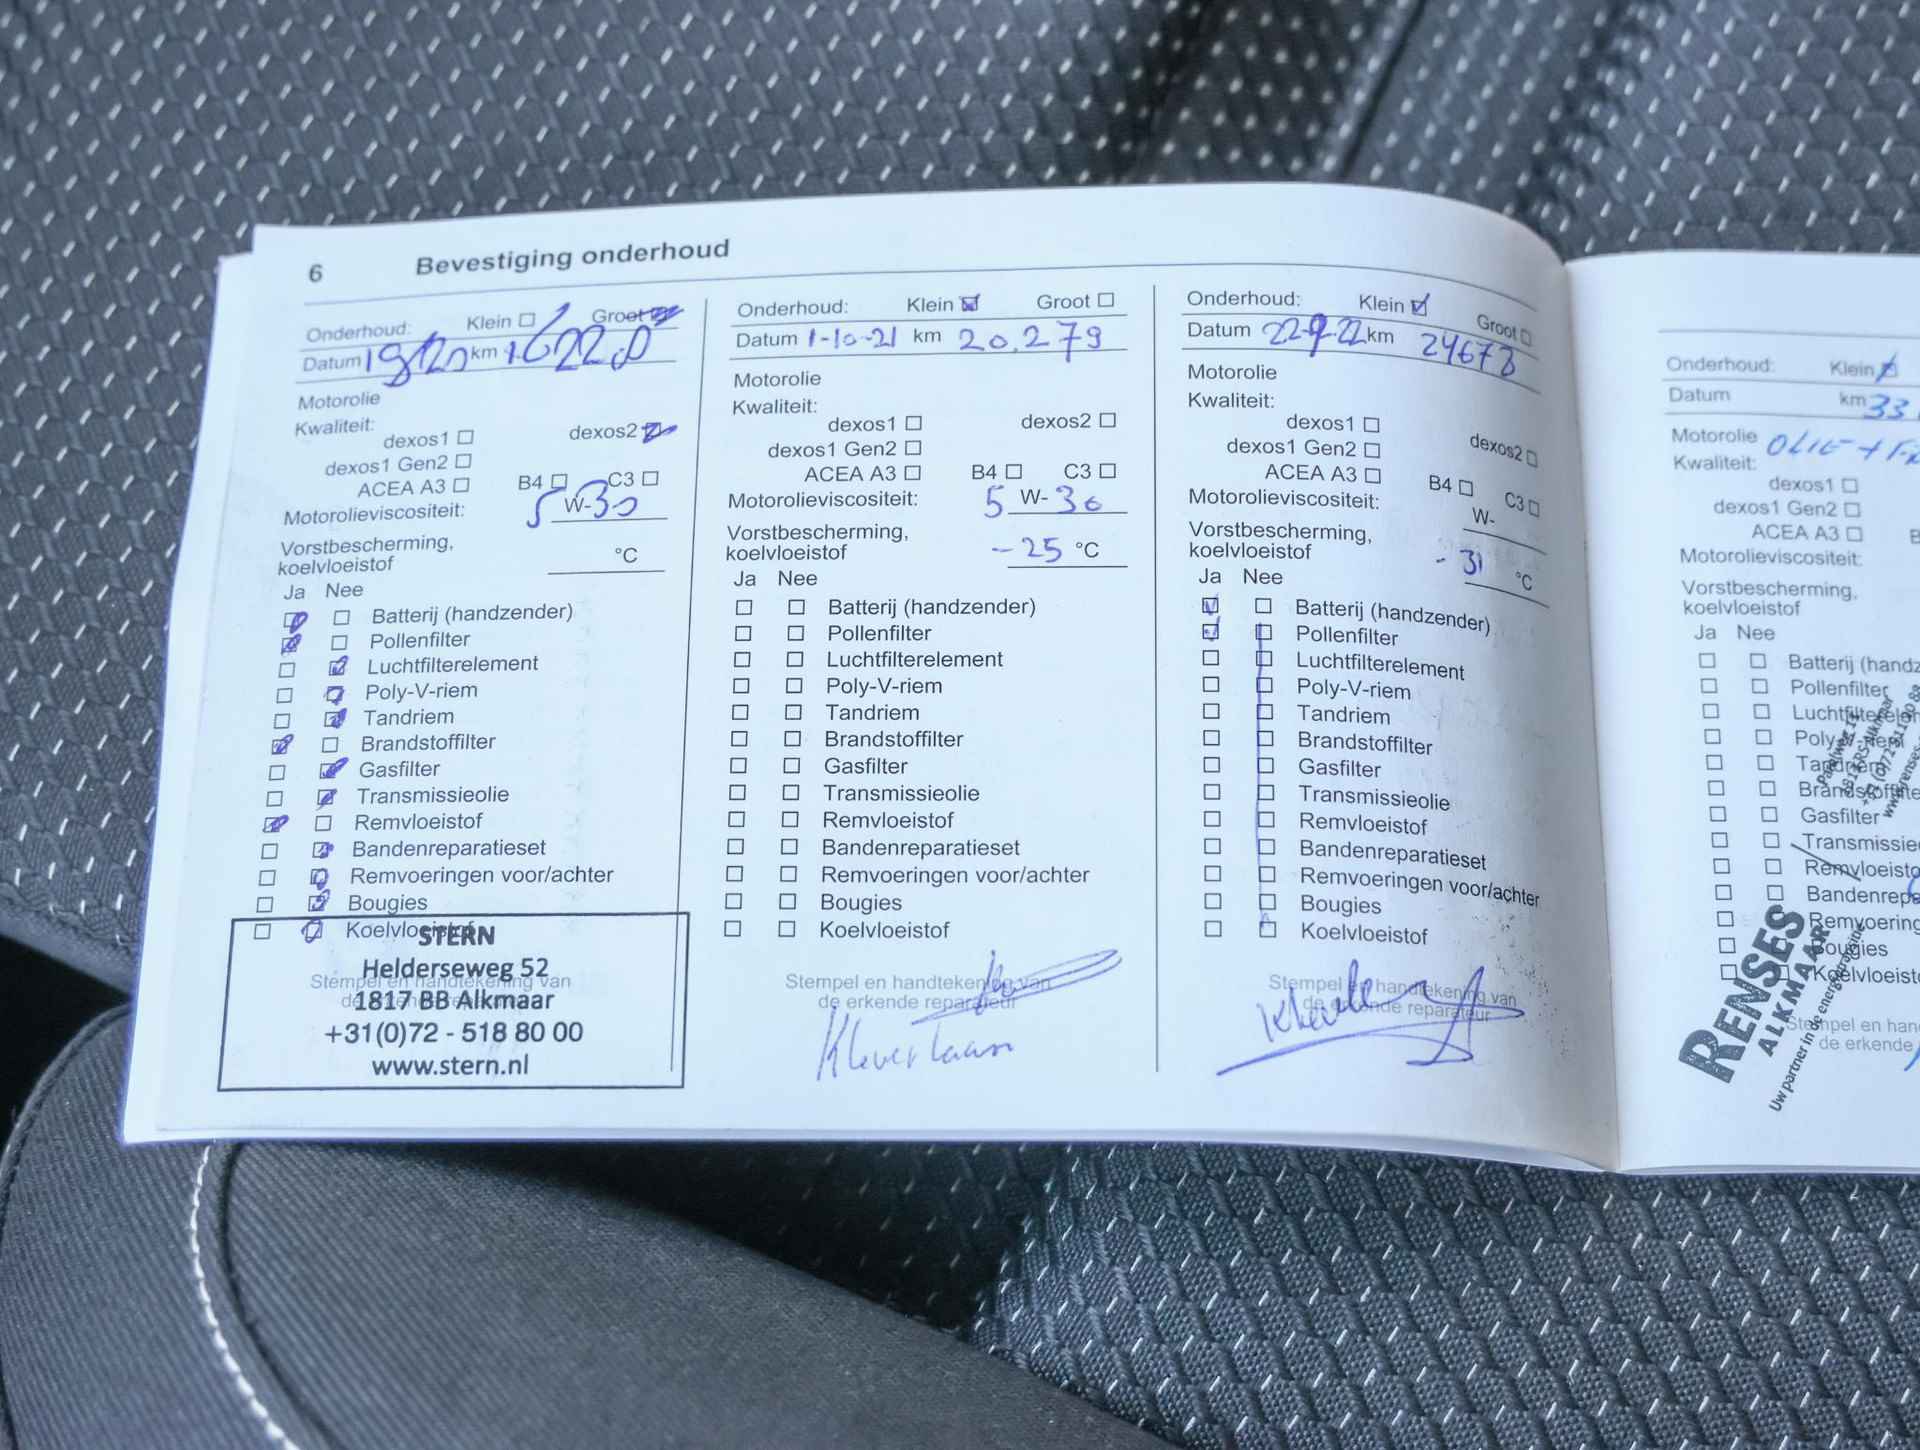 6 Bevestiging onderhoud
Onderhoud: Klein Groot
Datum km 16220
Motorolie
Kwaliteit:
dexos1 dexos2
dexos1 Gen2
ACEA A3 B4 C3
Motorolieviscositeit: 5 W-30
Vorstbescherming,
koelvloeistof °C
Ja Nee
Batterij (handzender)
Pollenfilter
Luchtfilterelement
Poly-V-riem
Tandriem
Brandstoffilter
Gasfilter
Transmissieolie
Remvloeistof
Bandenreparatieset
Remvoeringen voor/achter
Bougies
Koelvloeistof
Stempel en handtekening van
de erkende reparateur
STERN
Helderseweg 52
1817 BB Alkmaar
+31(0)72 - 518 80 00
www.stern.nl
Onderhoud: Klein Groot
Datum 1-10-21 km 20.279
Motorolie
Kwaliteit:
dexos1 dexos2
dexos1 Gen2
ACEA A3 B4 C3
Motorolieviscositeit: 5 W-30
Vorstbescherming,
koelvloeistof -25 °C
Ja Nee
Batterij (handzender)
Pollenfilter
Luchtfilterelement
Poly-V-riem
Tandriem
Brandstoffilter
Gasfilter
Transmissieolie
Remvloeistof
Bandenreparatieset
Remvoeringen voor/achter
Bougies
Koelvloeistof
Stempel en handtekening van
de erkende reparateur
Kleverlaan
Onderhoud: Klein Groot
Datum 22-9-22 km 24673
Motorolie
Kwaliteit:
dexos1 dexos2
dexos1 Gen2
ACEA A3 B4 C3
Motorolieviscositeit: W-
Vorstbescherming,
koelvloeistof -31 °C
Ja Nee
Batterij (handzender)
Pollenfilter
Luchtfilterelement
Poly-V-riem
Tandriem
Brandstoffilter
Gasfilter
Transmissieolie
Remvloeistof
Bandenreparatieset
Remvoeringen voor/achter
Bougies
Koelvloeistof
Stempel en handtekening van
de erkende reparateur
Onderhoud: Klein
Datum km 33
Motorolie OLIE +
Kwaliteit:
dexos1
dexos1 Gen2
ACEA A3 B
Motorolieviscositeit:
Vorstbescherming,
koelvloeistof
Ja Nee
Batterij (handz
Pollenfilter
Luchtfilterelem
Poly-V-riem
Tandriem
Brandstoffilte
Gasfilter
Transmissie
Remvloeisto
Bandenrepa
Remvoering
Bougies
Koelvloeist
Stempel en han
de erkende
RENSES
ALKMAAR
Uw partner in de energietransitie